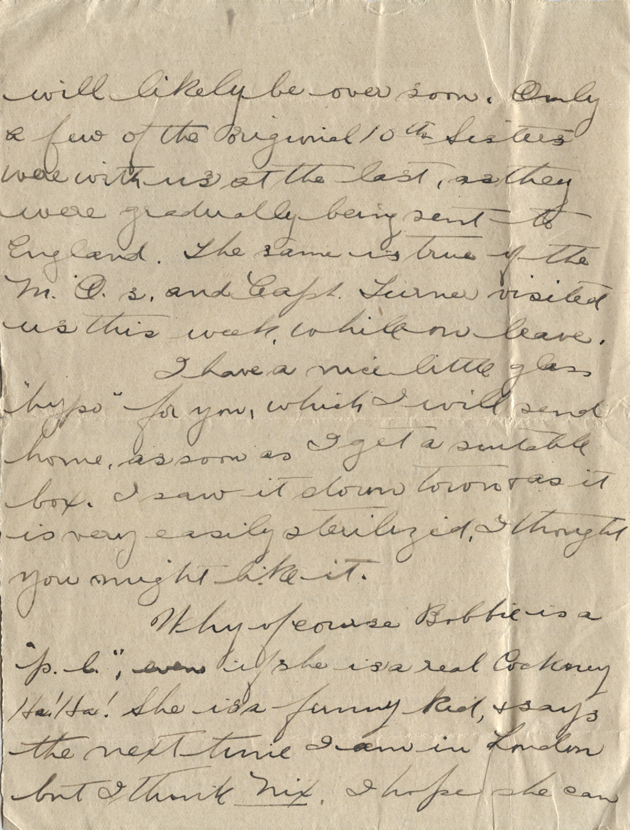 will likely be over soon. Only
a few of the original 10th Sisters
were with us at the last, as they
were gradually being sent to
England. The same is true of the
M. O. s. and Capt. Turner visited
us this week, while on leave.
I have a nice little glass
"hypo" for you, which I will send
home, as soon as I get a suitable
box. I saw it down town & as it
is very easily sterilized, I thought
you might like it.
Why of course Bobbie is a
"p. b.", even if she is a real Cockney
Ha! Ha! She is a funny kid, & says
the next time I am in London
but I think Nix. I hope she can